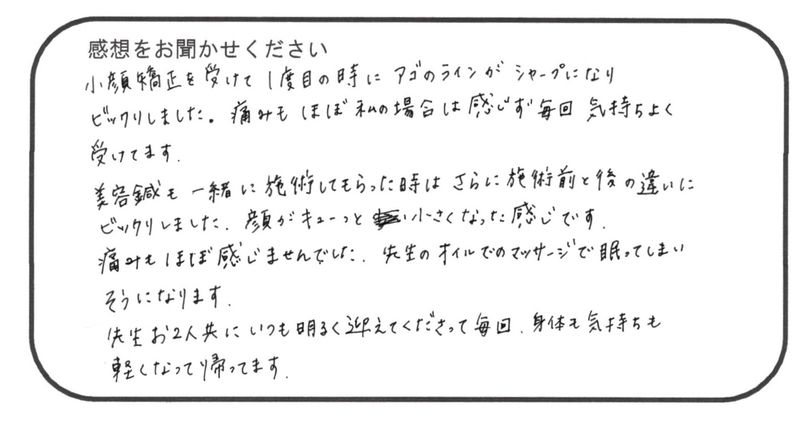 感想をお聞かせください
小顔矯正を受けて1度目の時にアゴのラインがシャープになり
ビックリしました。痛みもほぼ私の場合は感じず毎回気持ちよく
受けてます.
美容鍼も一緒に施術してもらった時はさらに施術前と後の違いに
ビックリしました.顔がキューっと小さくなった感じです.
痛みもほぼ感じませんでした.先生のオイルでのマッサージで眠ってしまい
そうになります.
先生お2人共にいつも明るく迎えてくださって毎回.身体も気持ちも
軽くなって帰ってます.